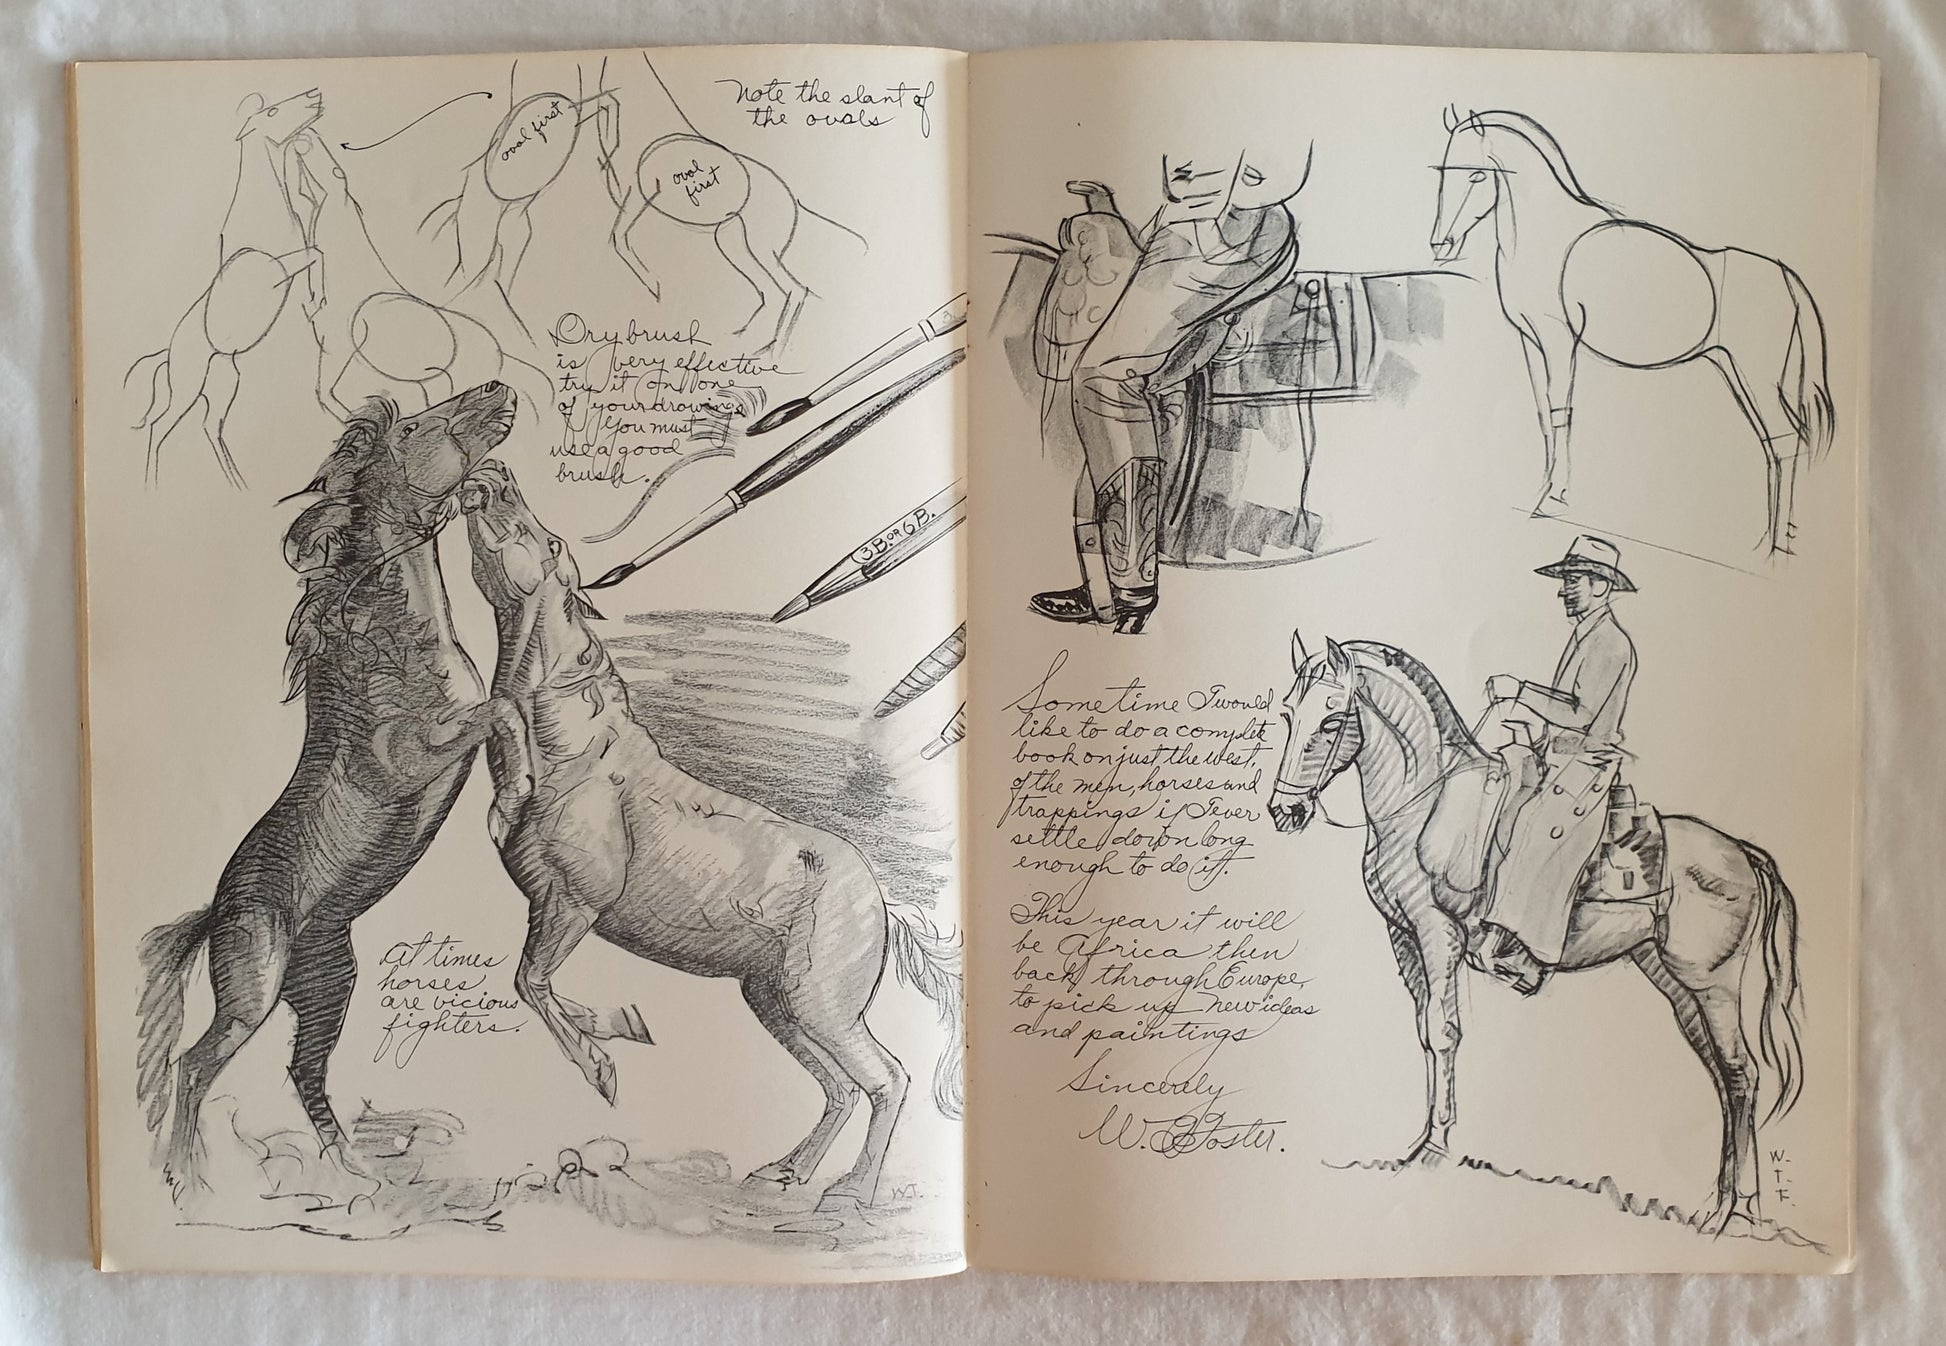 Note the slant of
the ovals
oval first
oval
first
Dry brush
is very effective
try it on one
of your drawings
You must
use a good
brush.
3B. OR 6B.
At times
horses
are vicious
fighters.
W.T.
Sometime I would
like to do a complete
book on just the west.
of the men, horses and
trappings if I ever
settle down long
enough to do it.
This year it will
be Africa then
back through Europe,
to pick up new ideas
and paintings
Sincerely
W. T. Foster.
W.
T.
F.